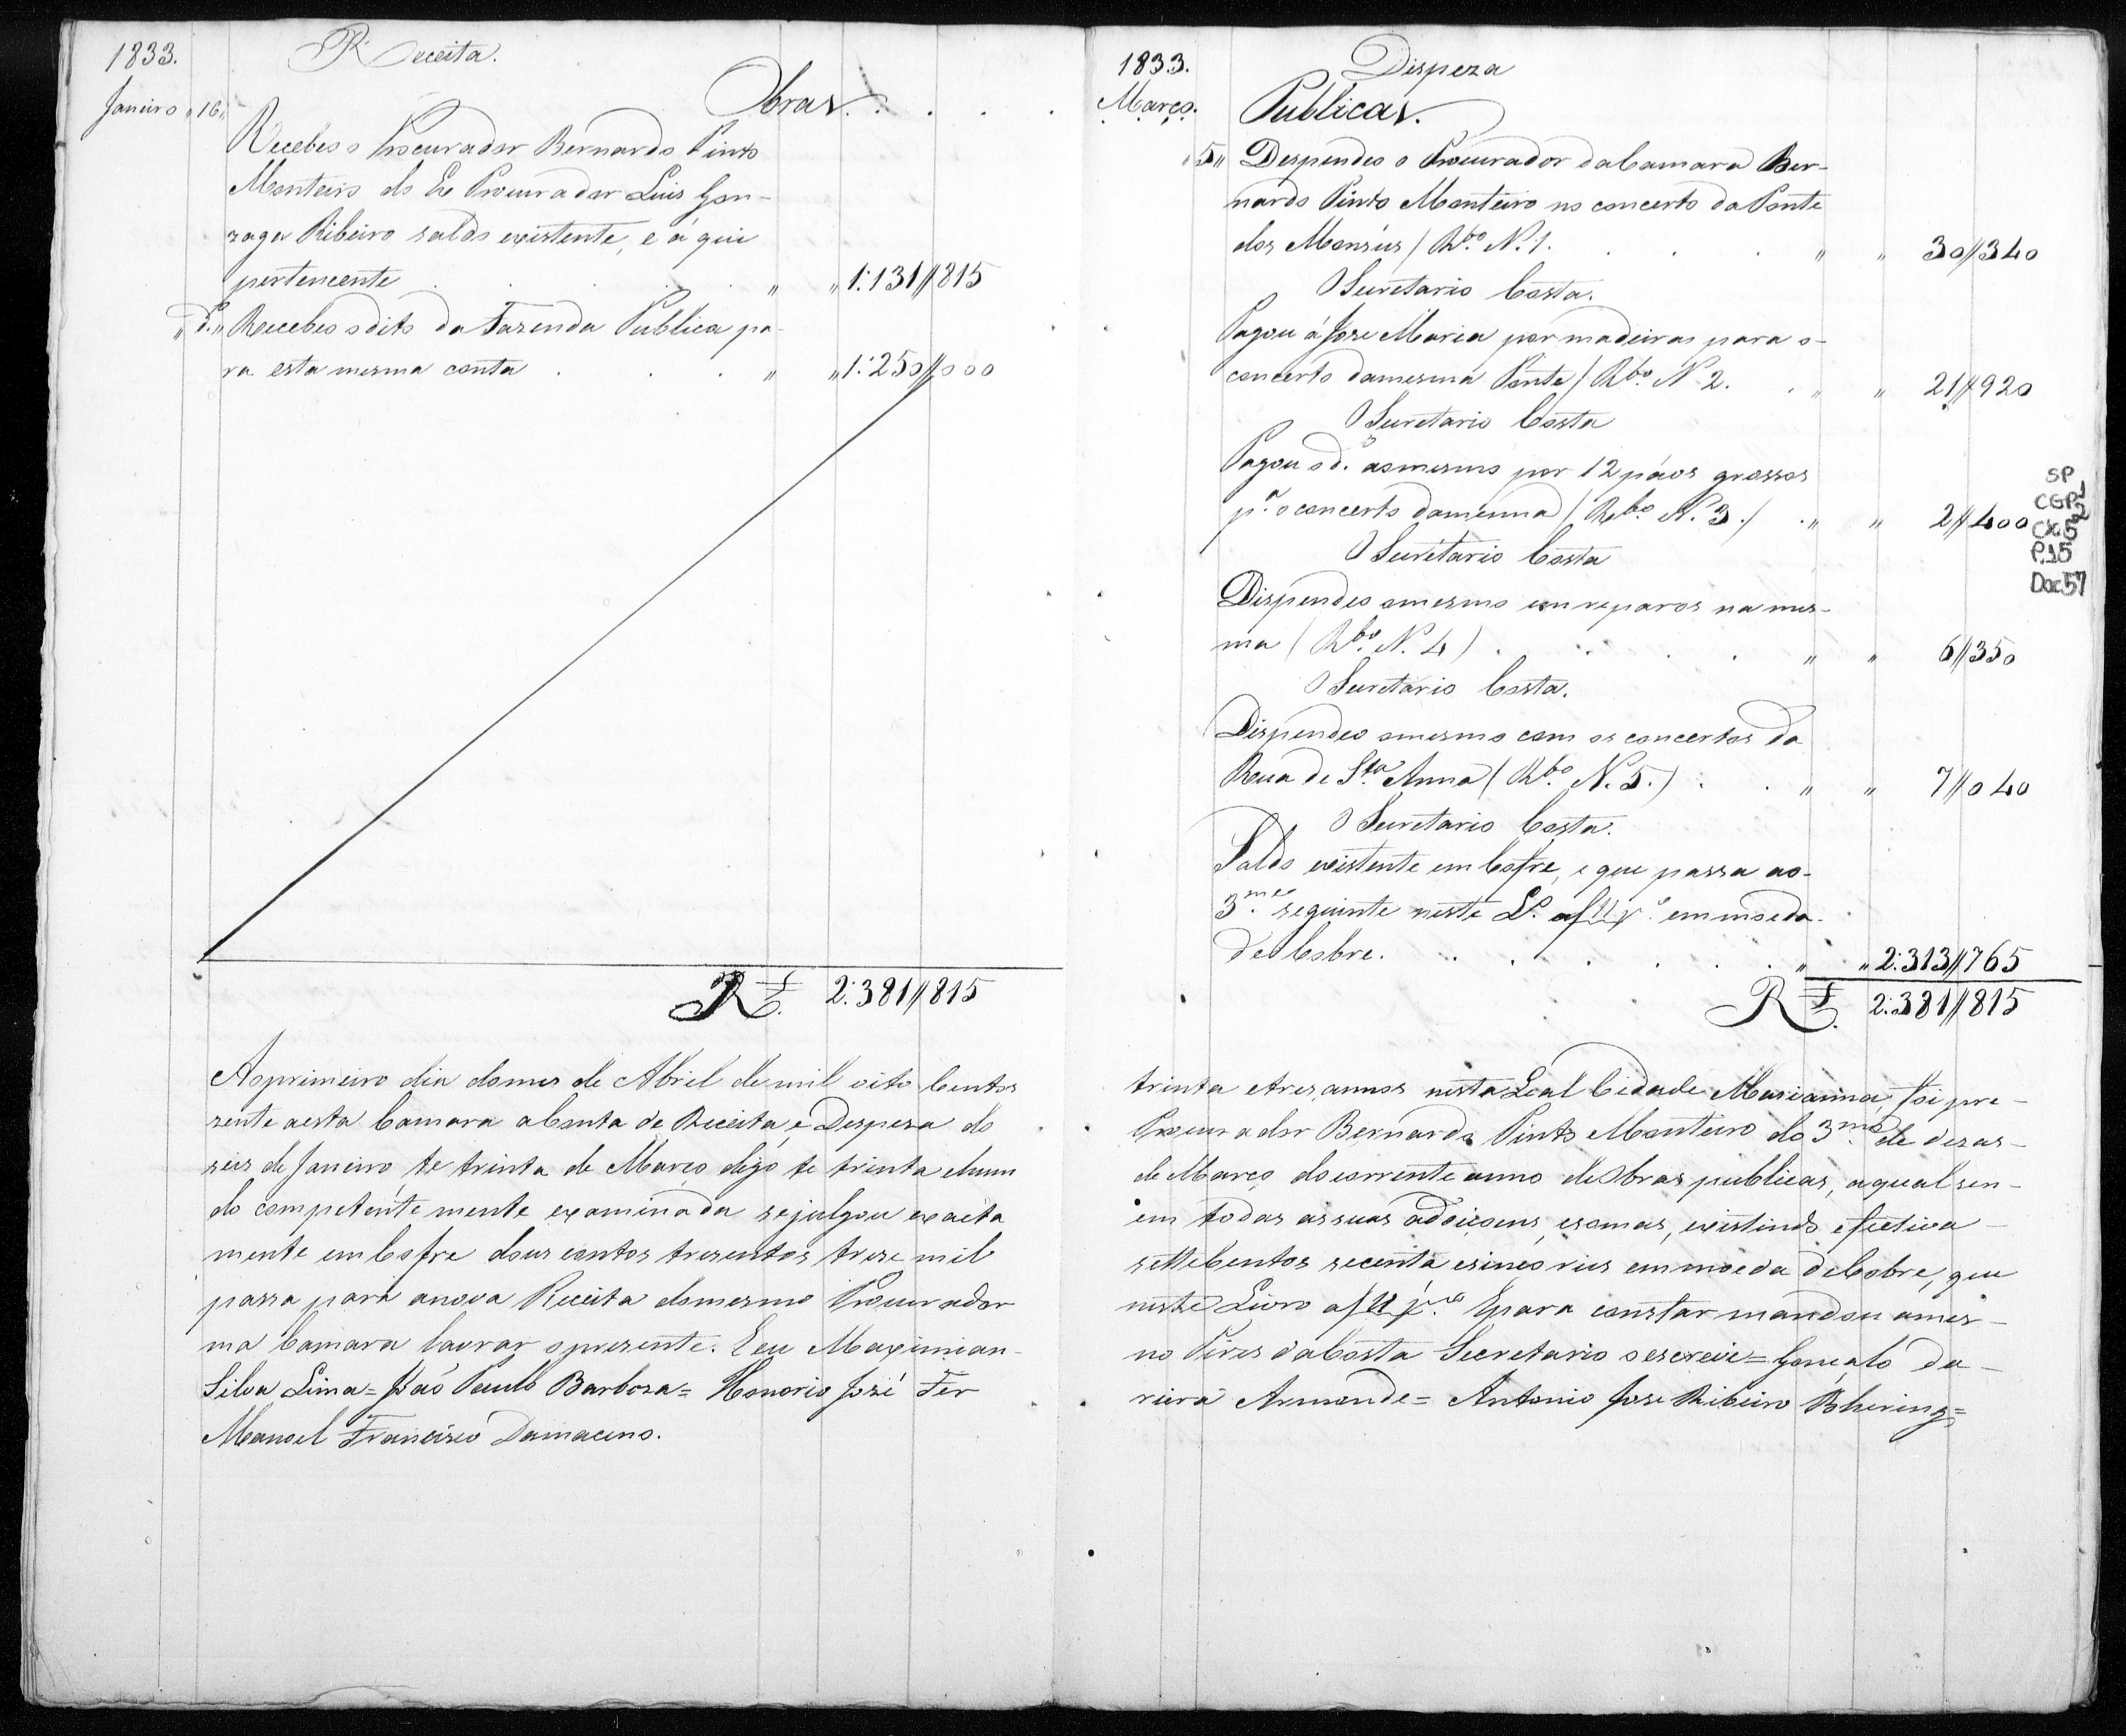 1833. Receita.
Obras . . . .
Janeiro "16"
Recebeo o Procurador Bernardo Pinto
Monteiro do Ex Procurador Luis Gon-
zaga Ribeiro saldo existente, e á qui
pertencente . . . . " " 1:131//815
"d.º" Recebeo o dito da Fazenda Publica pa-
ra esta mesma conta . . . " " 1:250//000
R.s 2:381//815
Ao primeiro dia do mes de Abril de mil oito Centos
zente a esta Camara a Conta de Receita, e Despeza do
seis de Janeiro te trinta de Março digo te trinta e hum
do competentemente examinada se julgou exacta
mente em Cofre dous contos trezentos treze mil
passa para a nova Receita do mesmo Procurador
ma Camara lavrar o prezente. E eu Maximian-
Silva Lima = João Paulo Barboza = Honorio José Fer
Manoel Francisco Damaceno.
1833. Dispeza
Março. Publicas.
"5" Despendeo o Procurador da Camara Ber-
nardo Pinto Monteiro no concerto da Ponte
dos Monsús / R.bo N. 1. . . . " " 30//340
O Secretario Costa.
Pagou á Joze Maria por madeiras para o
concerto da mesma Ponte / R.bo N 2. . " " 21//920
O Secretario Costa
Pagou o d.º ao mesmo por 12 páos grossos
p.ª o concerto da mesma / R.bo N. 3./ . " " 2//400
O Secretario Costa
Dispendeo o mesmo em reparos na mes-
ma ( R.bo N. 4 ) . . . . " " 6//350
O Secretario Costa.
Dispendeo o mesmo com os concertos da
Rua de S.ta Anna ( R.bo N. 5. ) . . " " 7//040
O Secretario Costa.
Saldo existente em Cofre, e que passa ao
3.me seguinte neste L.º af 11 v.º em moeda
de Cobre. . . . . . . " " 2:313//765
R.s 2:381//815
SP
CGP1
2
CX.5
P.15
Doc57
trinta e tres annos nesta Leal Cidade Marianna, foi pre-
Procurador Bernardo Pinto Monteiro do 3.me de dezas-
de Março do corrente anno de Obras publicas, a qual sen-
em todas as suas adoiçoens, e somas, existindo efectiva-
sette Centos secenta e sinco reis em moeda de Cobre, que
neste Livro af 11 v.º E para constar mandou a mes-
no Pires da Costa Secretario o escrevi = Gonçalo da
reira Armonde = Antonio Joze Ribeiro Bhering =